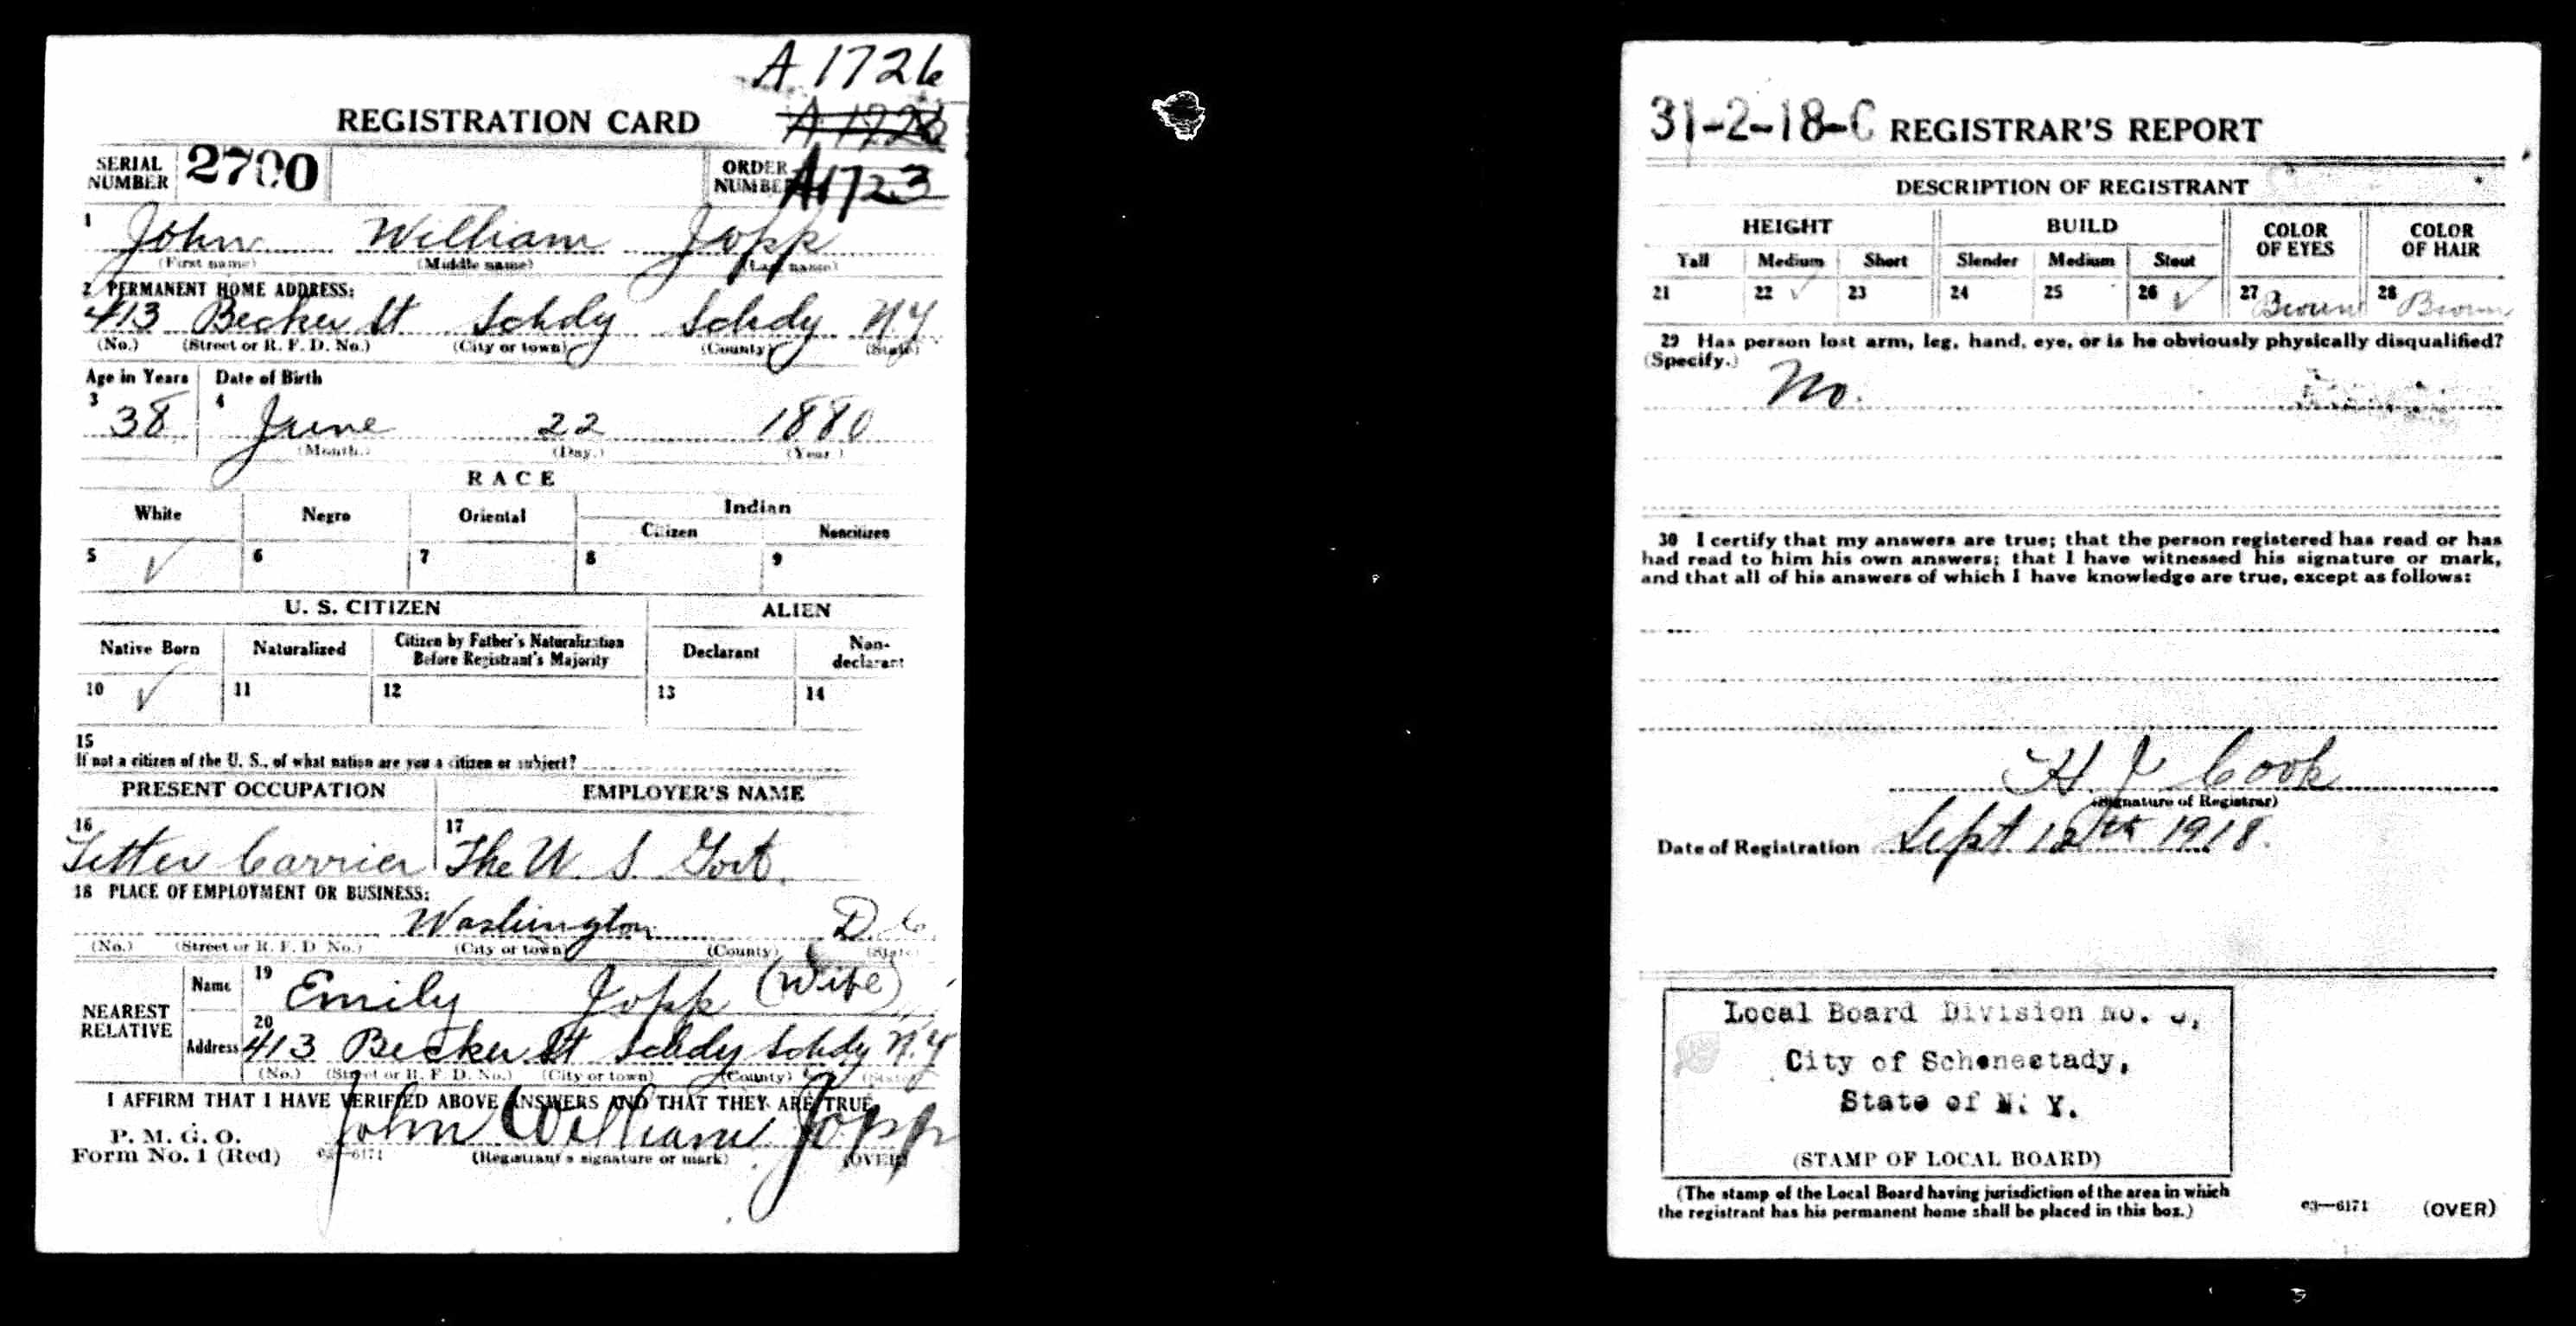 A 1726
REGISTRATION CARD A 1726
SERIAL NUMBER 2700 ORDER NUMBER A1723
1 John William Jopp
(First name) (Middle name) (Last name)
2 PERMANENT HOME ADDRESS:
413 Becker St Schdy Schdy N.Y.
(No.) (Street or R. F. D. No.) (City or town) (County) (State)
Age in Years Date of Birth
3 38 4 June 22 1880
(Month.) (Day.) (Year.)
RACE
White Negro Oriental Indian
Citizen Noncitizen
5 ✓ 6 7 8 9
U. S. CITIZEN ALIEN
Native Born Naturalized Citizen by Father's Naturalization Before Registrant's Majority Declarant Non-declarant
10 ✓ 11 12 13 14
15
If not a citizen of the U. S., of what nation are you a citizen or subject?
PRESENT OCCUPATION EMPLOYER'S NAME
16 Letter Carrier 17 The U. S. Govt.
18 PLACE OF EMPLOYMENT OR BUSINESS:
Washington D.C.
(No.) (Street or R. F. D. No.) (City or town) (County) (State)
NEAREST RELATIVE Name 19 Emily Jopp (Wife)
Address 20 413 Becker St Schdy Schdy N.Y
(No.) (Street or R. F. D. No.) (City or town) (County) (State)
I AFFIRM THAT I HAVE VERIFIED ABOVE ANSWERS AND THAT THEY ARE TRUE
P. M. G. O.
Form No. 1 (Red) 03—6171 John William Jopp
(Registrant's signature or mark) (OVER)
31-2-18-C REGISTRAR'S REPORT
DESCRIPTION OF REGISTRANT
HEIGHT BUILD COLOR OF EYES COLOR OF HAIR
Tall Medium Short Slender Medium Stout
21 22 ✓ 23 24 25 26 ✓ 27 Brown 28 Brown
29 Has person lost arm, leg, hand, eye, or is he obviously physically disqualified?
(Specify.) No.
30 I certify that my answers are true; that the person registered has read or has
had read to him his own answers; that I have witnessed his signature or mark,
and that all of his answers of which I have knowledge are true, except as follows:
H J Cook
(Signature of Registrar)
Date of Registration Sept 12th 1918.
Local Board Division No.
City of Schenectady,
State of N. Y.
(STAMP OF LOCAL BOARD)
(The stamp of the Local Board having jurisdiction of the area in which
the registrant has his permanent home shall be placed in this box.)
03—6171 (OVER)